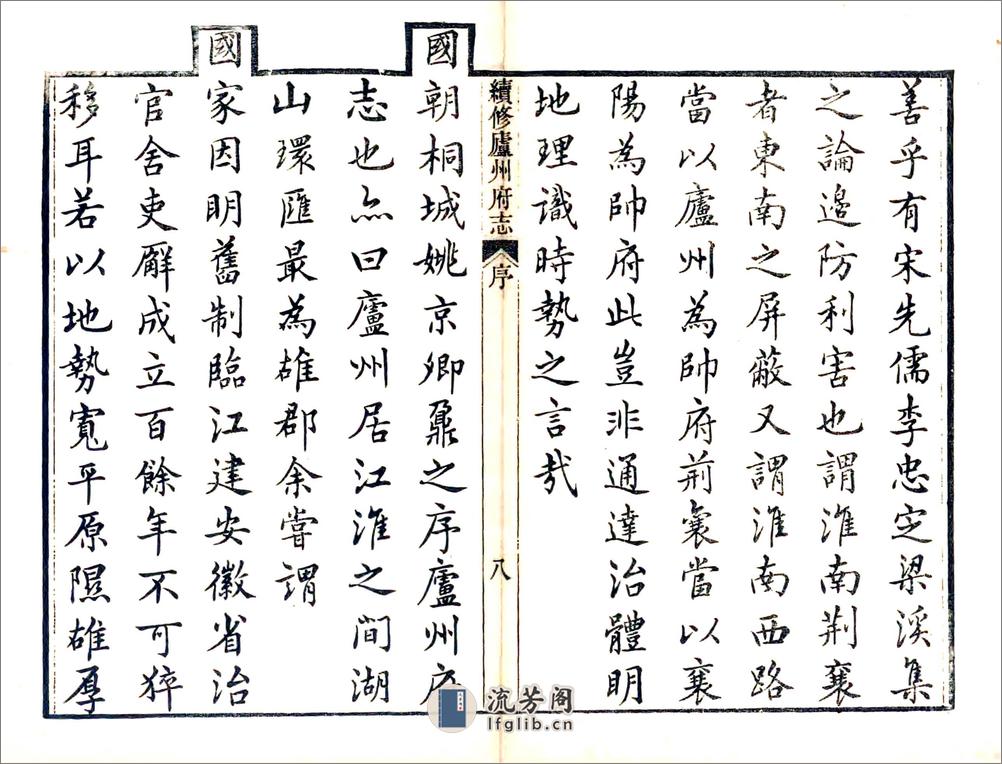 善乎有宋先儒李忠定梁溪集
之論邊防利害也謂淮南荆襄
者東南之屏蔽又謂淮南西路
當以廬州為帥府荊襄當以襄
陽為帥府此豈非通達治體明
地理識時勢之言哉
續修廬州府志 序 八
國朝桐城姚京卿鼐之序廬州府
志也亦曰廬州居江淮之間湖
山環匯最為雄郡余嘗謂
國家因明舊制臨江建安徽省治
官舍吏廨成立百餘年不可猝
移耳若以地勢寬平原隰雄厚
流芳阁
lfglib.cn